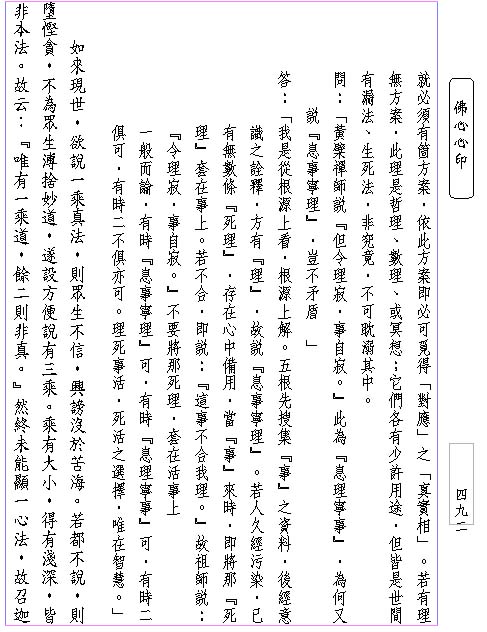 佛心心印
四九二
就必須有箇方案，依此方案即必可覓得「對應」之「真實相」。若有理
無方案，此理是哲理、數理、或冥想；它們各有少許用途，但皆是世間
有漏法、生死法，非究竟，不可耽溺其中。
問：「黃檗禪師說『但令理寂，事自寂。』此為『息理寧事』，為何又
說『息事寧理』，豈不矛盾　」
答：「我是從根源上看，根源上解。五根先搜集『事』之資料，後經意
識之詮釋，方有『理』，故說『息事寧理』。若人久經污染，已
有無數條『死理』，存在心中備用，當『事』來時，即將那『死
理』套在事上。若不合，即說：『這事不合我理。』故祖師說：
『令理寂，事自寂。』不要將那死理，套在活事上
一般而論，有時『息事寧理』可，有時『息理寧事』可，有時二
俱可，有時二不俱亦可。理死事活，死活之選擇，唯在智慧。」
如來現世，欲說一乘真法，則眾生不信，興謗沒於苦海。若都不說，則
墮慳貪，不為眾生溥捨妙道，遂設方便說有三乘。乘有大小，得有淺深，皆
非本法。故云：『唯有一乘道，餘二則非真。』然終未能顯一心法，故召迦